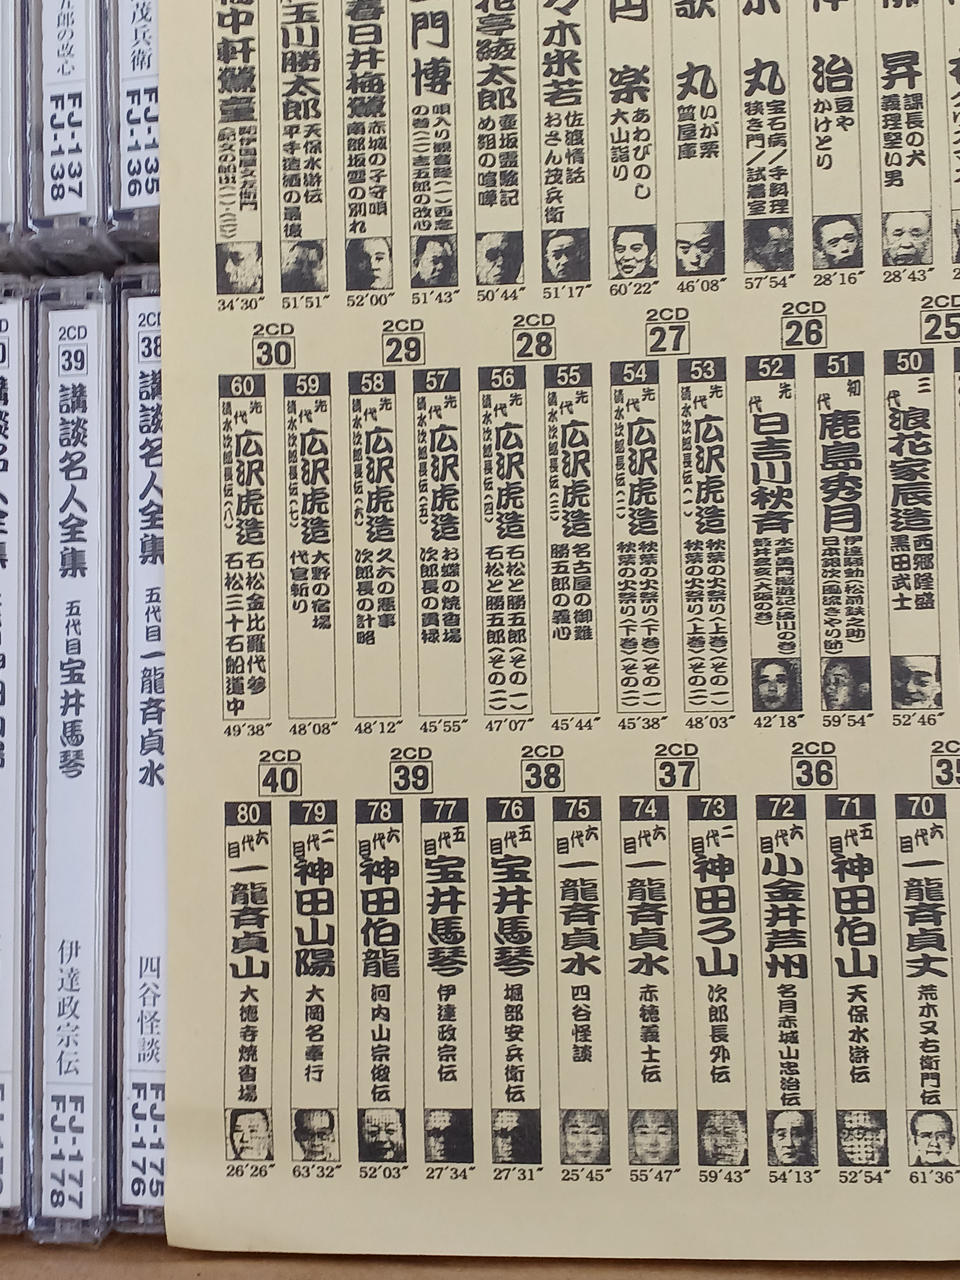 茂兵衛
FJ-135
FJ-136
五郎の改心
FJ-137
FJ-138
昇
課長の犬
義理堅い男
28′43″
治
豆や
かけとり
28′16″
丸
宝石病/手料理
狭き門/試着室
57′54″
歌
丸
いが栗
質屋庫
46′08″
円
楽
あわびのし
大山詣り
60′22″
木米若
佐渡情話
おさん茂兵衛
51′17″
花亭綾太郎
壺坂霊験記
め組の喧嘩
50′44″
門
博
唄入り観音経(一)西念
の巻(二)吉五郎の改心
51′43″
春日井梅鶯
赤城の子守唄
南部坂雪の別れ
52′00″
玉川勝太郎
天保水滸伝
平手造酒の最後
51′51″
中軒鶯童
34′30″
2CD
25
50
三代
浪花家辰造
西郷隆盛
黒田武士
52′46″
2CD
26
51
初代
鹿島秀月
伊達騒動(松前鉄之助)
日本銀次(風流きやり節)
59′54″
52
先代
日吉川秋斉
42′18″
2CD
27
53
先代
広沢虎造
清水次郎長伝(一)
秋葉の火祭り〈上巻〉(その一)
秋葉の火祭り〈上巻〉(その二)
48′03″
54
先代
広沢虎造
清水次郎長伝(二)
秋葉の火祭り〈下巻〉(その一)
秋葉の火祭り〈下巻〉(その二)
45′38″
2CD
28
55
先代
広沢虎造
清水次郎長伝(三)
名古屋の御難
勝五郎の義心
45′44″
56
先代
広沢虎造
清水次郎長伝(四)
石松と勝五郎(その一)
石松と勝五郎(その二)
47′07″
2CD
29
57
先代
広沢虎造
清水次郎長伝(五)
お蝶の焼香場
次郎長の貫禄
45′55″
58
先代
広沢虎造
清水次郎長伝(六)
久六の悪事
次郎長の計略
48′12″
2CD
30
59
先代
広沢虎造
清水次郎長伝(七)
大野の宿場
代官斬り
48′08″
60
先代
広沢虎造
清水次郎長伝(八)
石松金比羅代参
石松三十石船道中
49′38″
35
70
六代目
一龍斉貞丈
荒木又右衛門伝
61′36″
2CD
36
71
五代目
神田伯山
天保水滸伝
52′54″
72
六代目
小金井芦州
名月赤城山忠治伝
54′13″
2CD
37
73
二代目
神田ろ山
次郎長外伝
59′43″
74
六代目
一龍斉貞水
赤穂義士伝
55′47″
2CD
38
75
六代目
一龍斉貞水
四谷怪談
25′45″
76
五代目
宝井馬琴
堀部安兵衛伝
27′31″
2CD
39
77
五代目
宝井馬琴
伊達政宗伝
27′34″
78
六代目
神田伯龍
河内山宗俊伝
52′03″
2CD
40
79
二代目
神田山陽
大岡名奉行
63′32″
80
六代目
一龍斉貞山
大徳寺焼香場
26′26″
2CD
38
講談名人全集
五代目 一龍斉貞水
四谷怪談
FJ-175
FJ-176
2CD
39
講談名人全集
五代目 宝井馬琴
伊達政宗伝
FJ-177
FJ-178